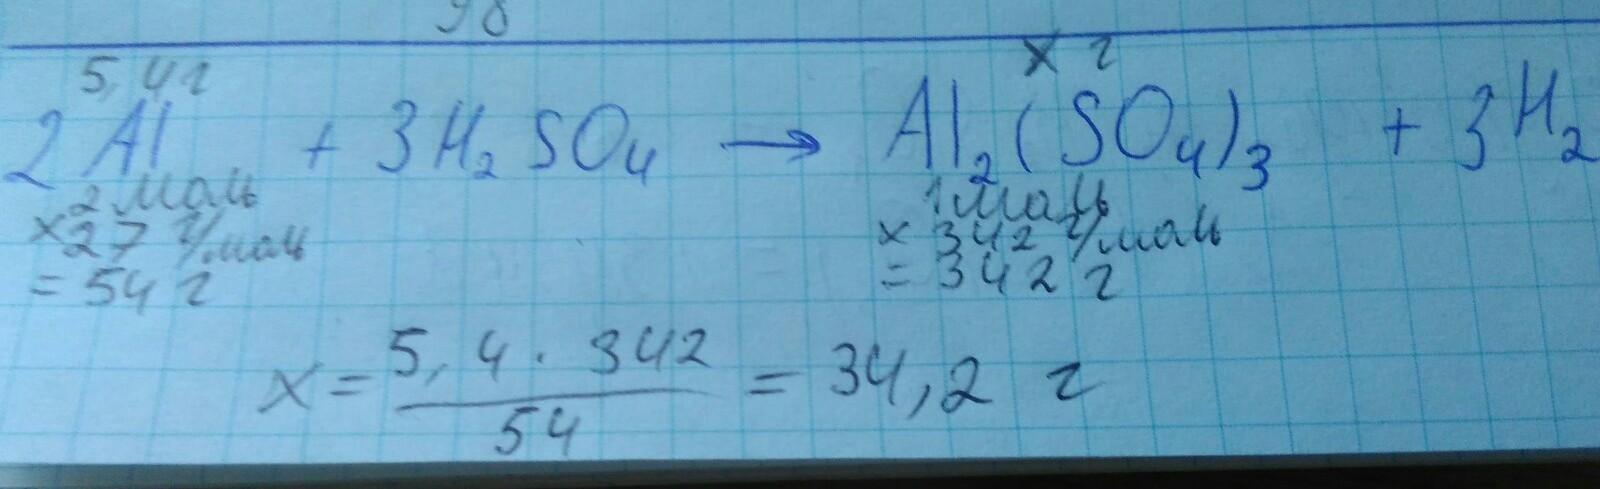 98
5,4г х г
2Al + 3H₂SO₄ → Al₂(SO₄)₃ + 3H₂
2 моль 1 моль
×27 г/моль × 342 г/моль
= 54 г = 342 г
х = 5,4 · 342 / 54 = 34,2 г